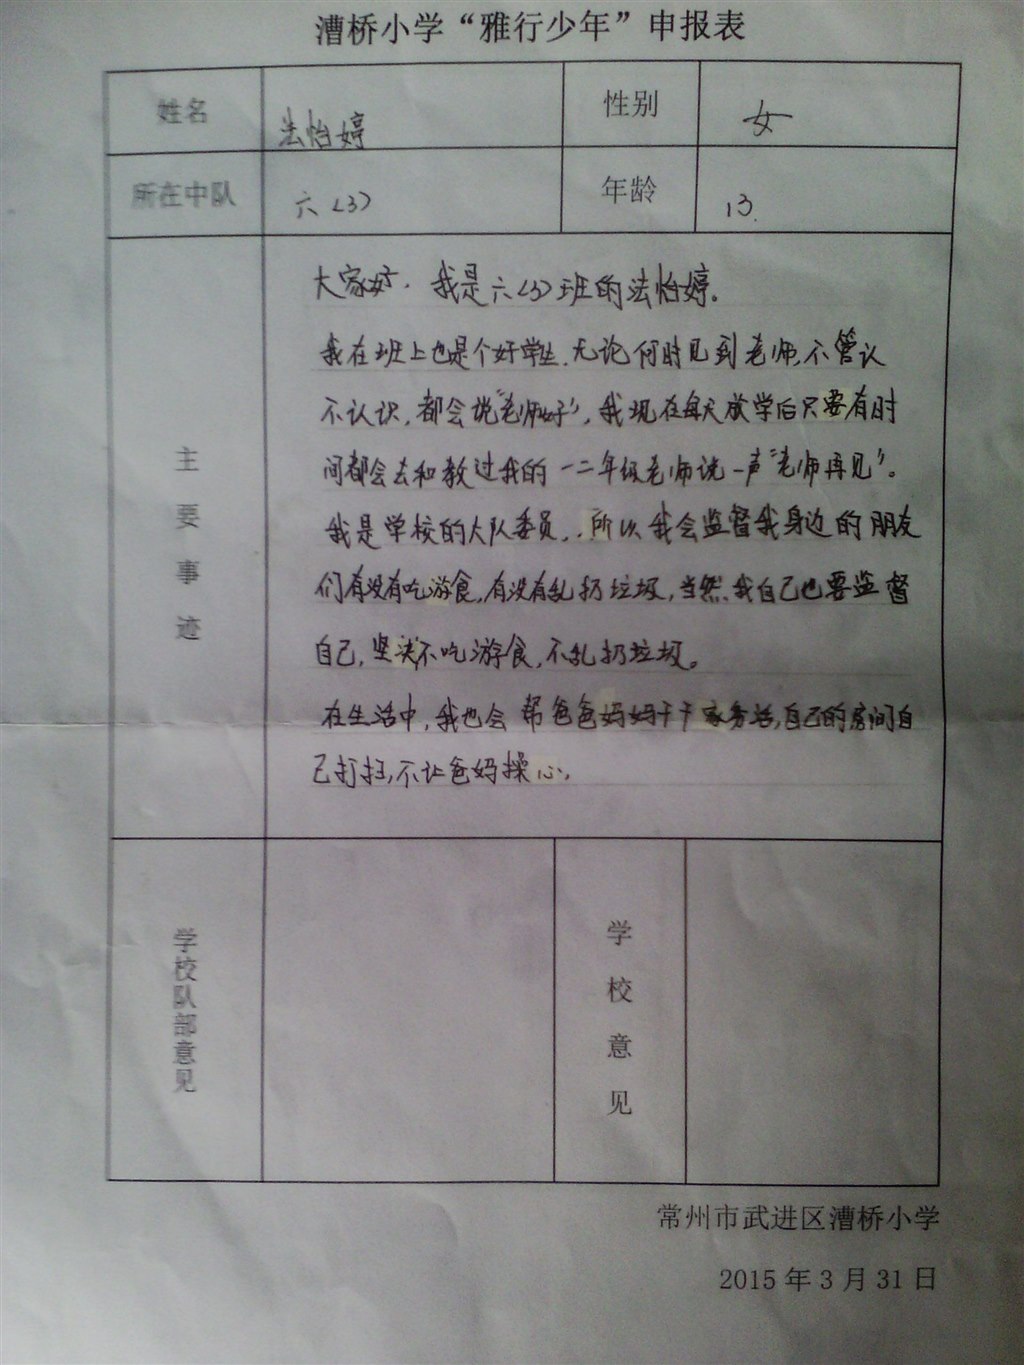 漕桥小学“雅行少年”申报表
姓名 法怡婷 性别 女
所在中队 六〈3〉 年龄 13.
主要事迹
大家好.我是六〈3〉班的法怡婷。
我在班上也是个好学生.无论何时见到老师,不管认
不认识,都会说“老师好”,我现在每天放学后只要有时
间都会去和教过我的一二年级老师说一声“老师再见”。
我是学校的大队委员,.所以我会监督我身边的朋友
们有没有吃游食,有没有乱扔垃圾,当然,我自己也要监督
自己,坚决不吃游食,不乱扔垃圾。
在生活中,我也会帮爸爸妈妈干干家务活,自己的房间自
己打扫,不让爸妈操心,
学校队部意见 学校意见
常州市武进区漕桥小学
2015年3月31日